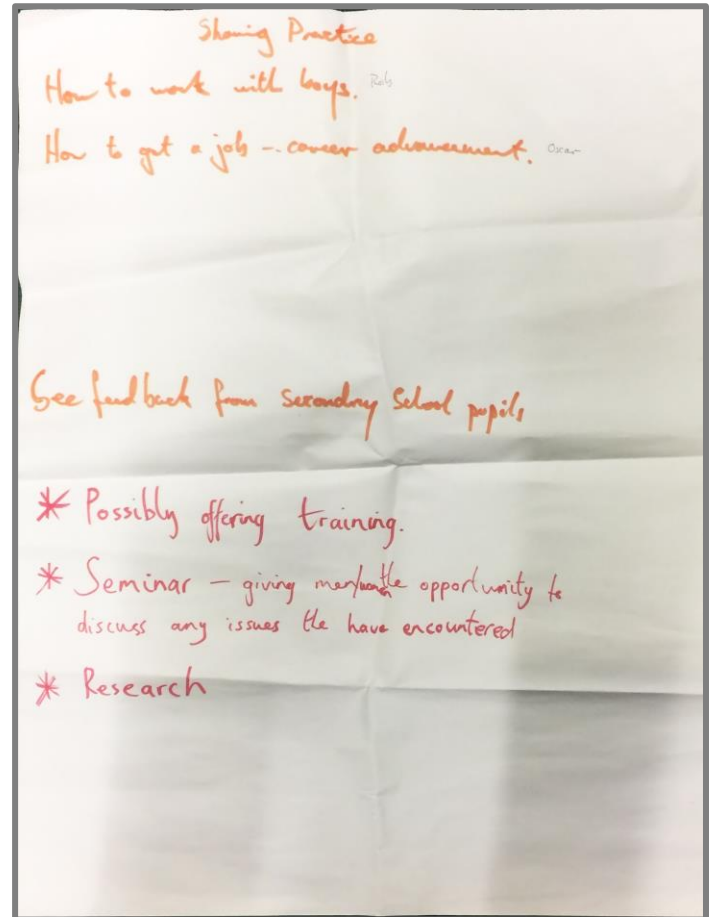 Sharing Practice
How to work with boys. Rob
How to get a job -- career advancement. Oscar
See feedback from secondary School pupils
* Possibly offering training.
* Seminar – giving men/women the opportunity to
discuss any issues the have encountered
* Research